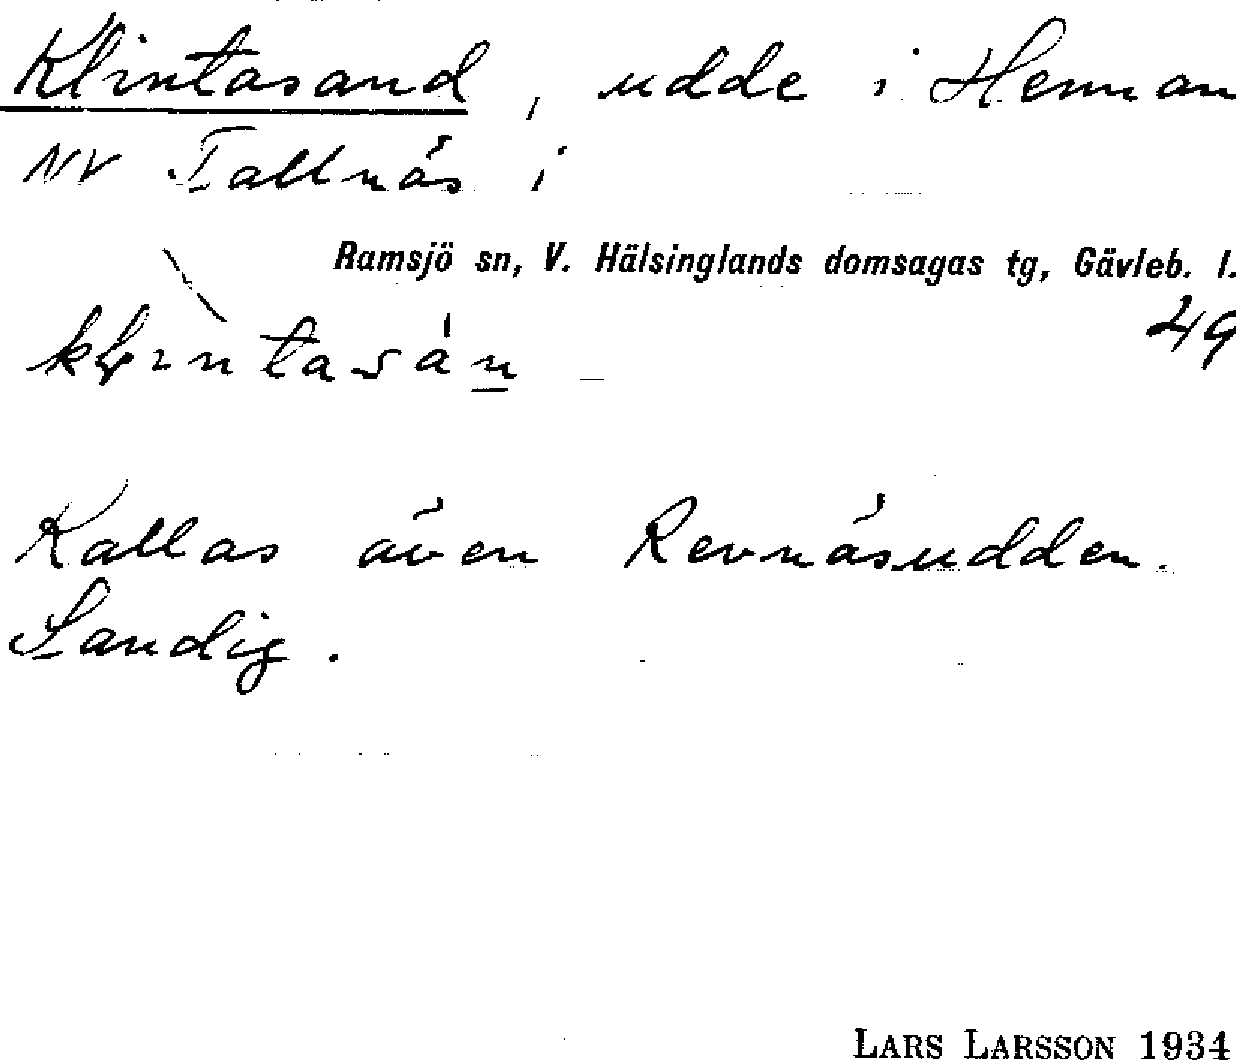 Klintasand, udde i Hennan
NV Tallnäs i
Ramsjö sn, V. Hälsinglands domsagas tg, Gävleb. l.
49
Kallas även Revnäsudden.
Sandig.
LARS LARSSON 1934